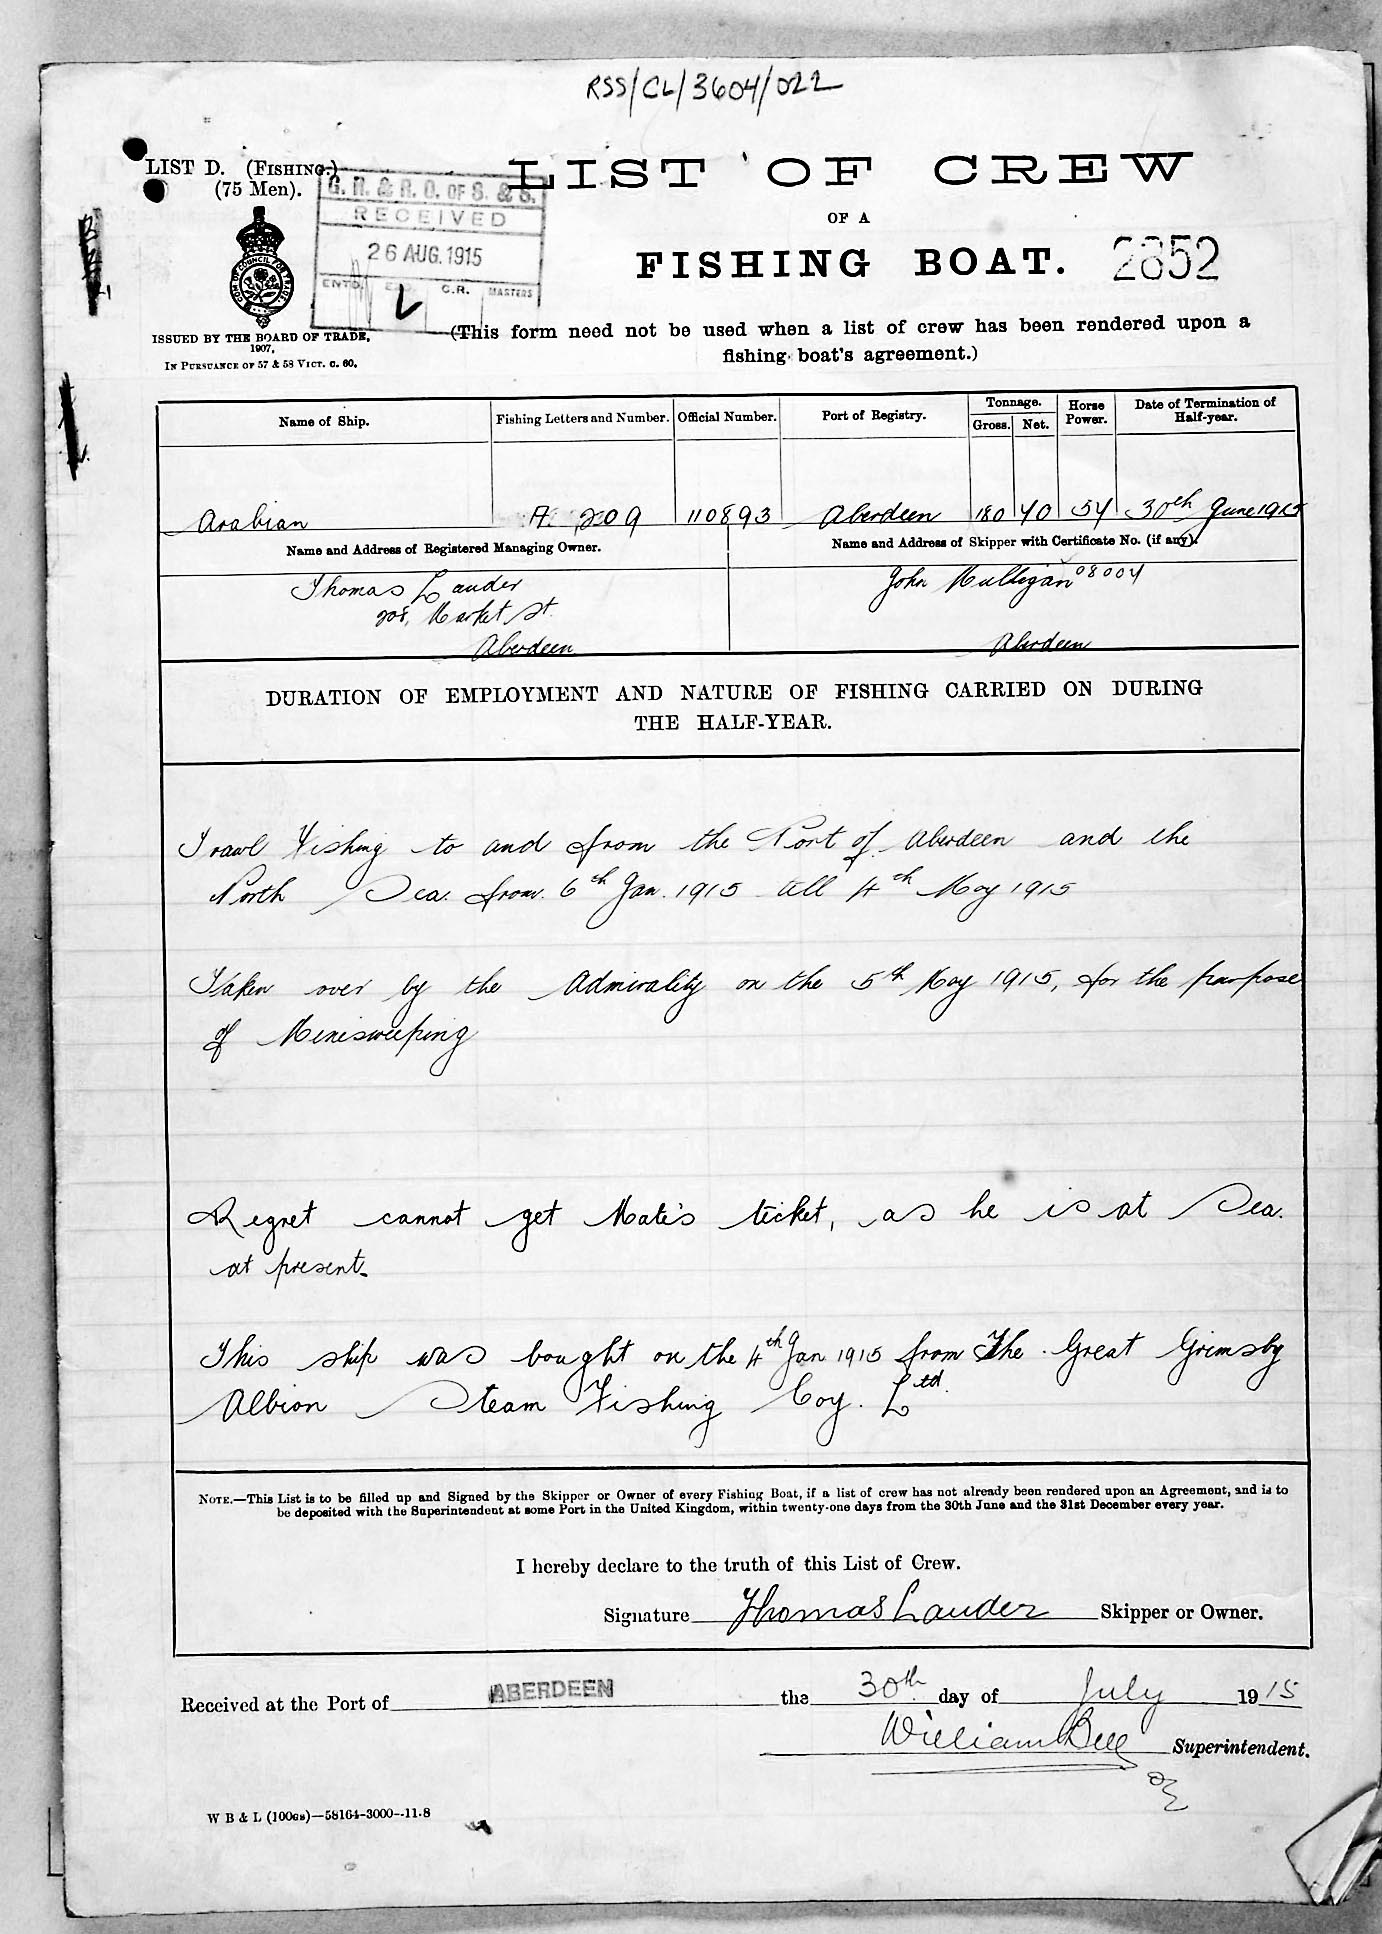 RSS/CL/3604/022
LIST D. (FISHING.)
(75 Men).
G. R. & R. O. OF S. & S.
RECEIVED
26 AUG. 1915
ENTD. C.R. MASTERS
LIST OF CREW
OF A
FISHING BOAT. 2852
ISSUED BY THE BOARD OF TRADE,
1907,
IN PURSUANCE OF 57 & 58 VICT. C. 60.
(This form need not be used when a list of crew has been rendered upon a
fishing boat's agreement.)
Name of Ship. Fishing Letters and Number. Official Number. Port of Registry. Tonnage. Horse Power. Date of Termination of Half-year.
Gross. Net.
Arabian A 209 110893 Aberdeen 180 70 54 30th June 1915
Name and Address of Registered Managing Owner. Name and Address of Skipper with Certificate No. (if any).
Thomas Lauder John Mulligan 08004
208, Market St.
Aberdeen Aberdeen
DURATION OF EMPLOYMENT AND NATURE OF FISHING CARRIED ON DURING
THE HALF-YEAR.
Trawl Fishing to and from the Port of Aberdeen and the
North Sea. from. 6th Jan. 1915 till 4th May 1915
Taken over by the Admirality on the 5th May 1915, for the purpose
of Minesweeping
Regret cannot get Mate's ticket, as he is at Sea.
at present.
This ship was bought on the 4th Jan 1915 from The Great Grimsby
Albion Steam Fishing Coy. Ltd.
NOTE.—This List is to be filled up and Signed by the Skipper or Owner of every Fishing Boat, if a list of crew has not already been rendered upon an Agreement, and is to
be deposited with the Superintendent at some Port in the United Kingdom, within twenty-one days from the 30th June and the 31st December every year.
I hereby declare to the truth of this List of Crew.
Signature Thomas Lauder Skipper or Owner.
Received at the Port of ABERDEEN the 30th day of July 1915
William Bell Superintendent.
W B & L (100GS)—58164-3000--11-8